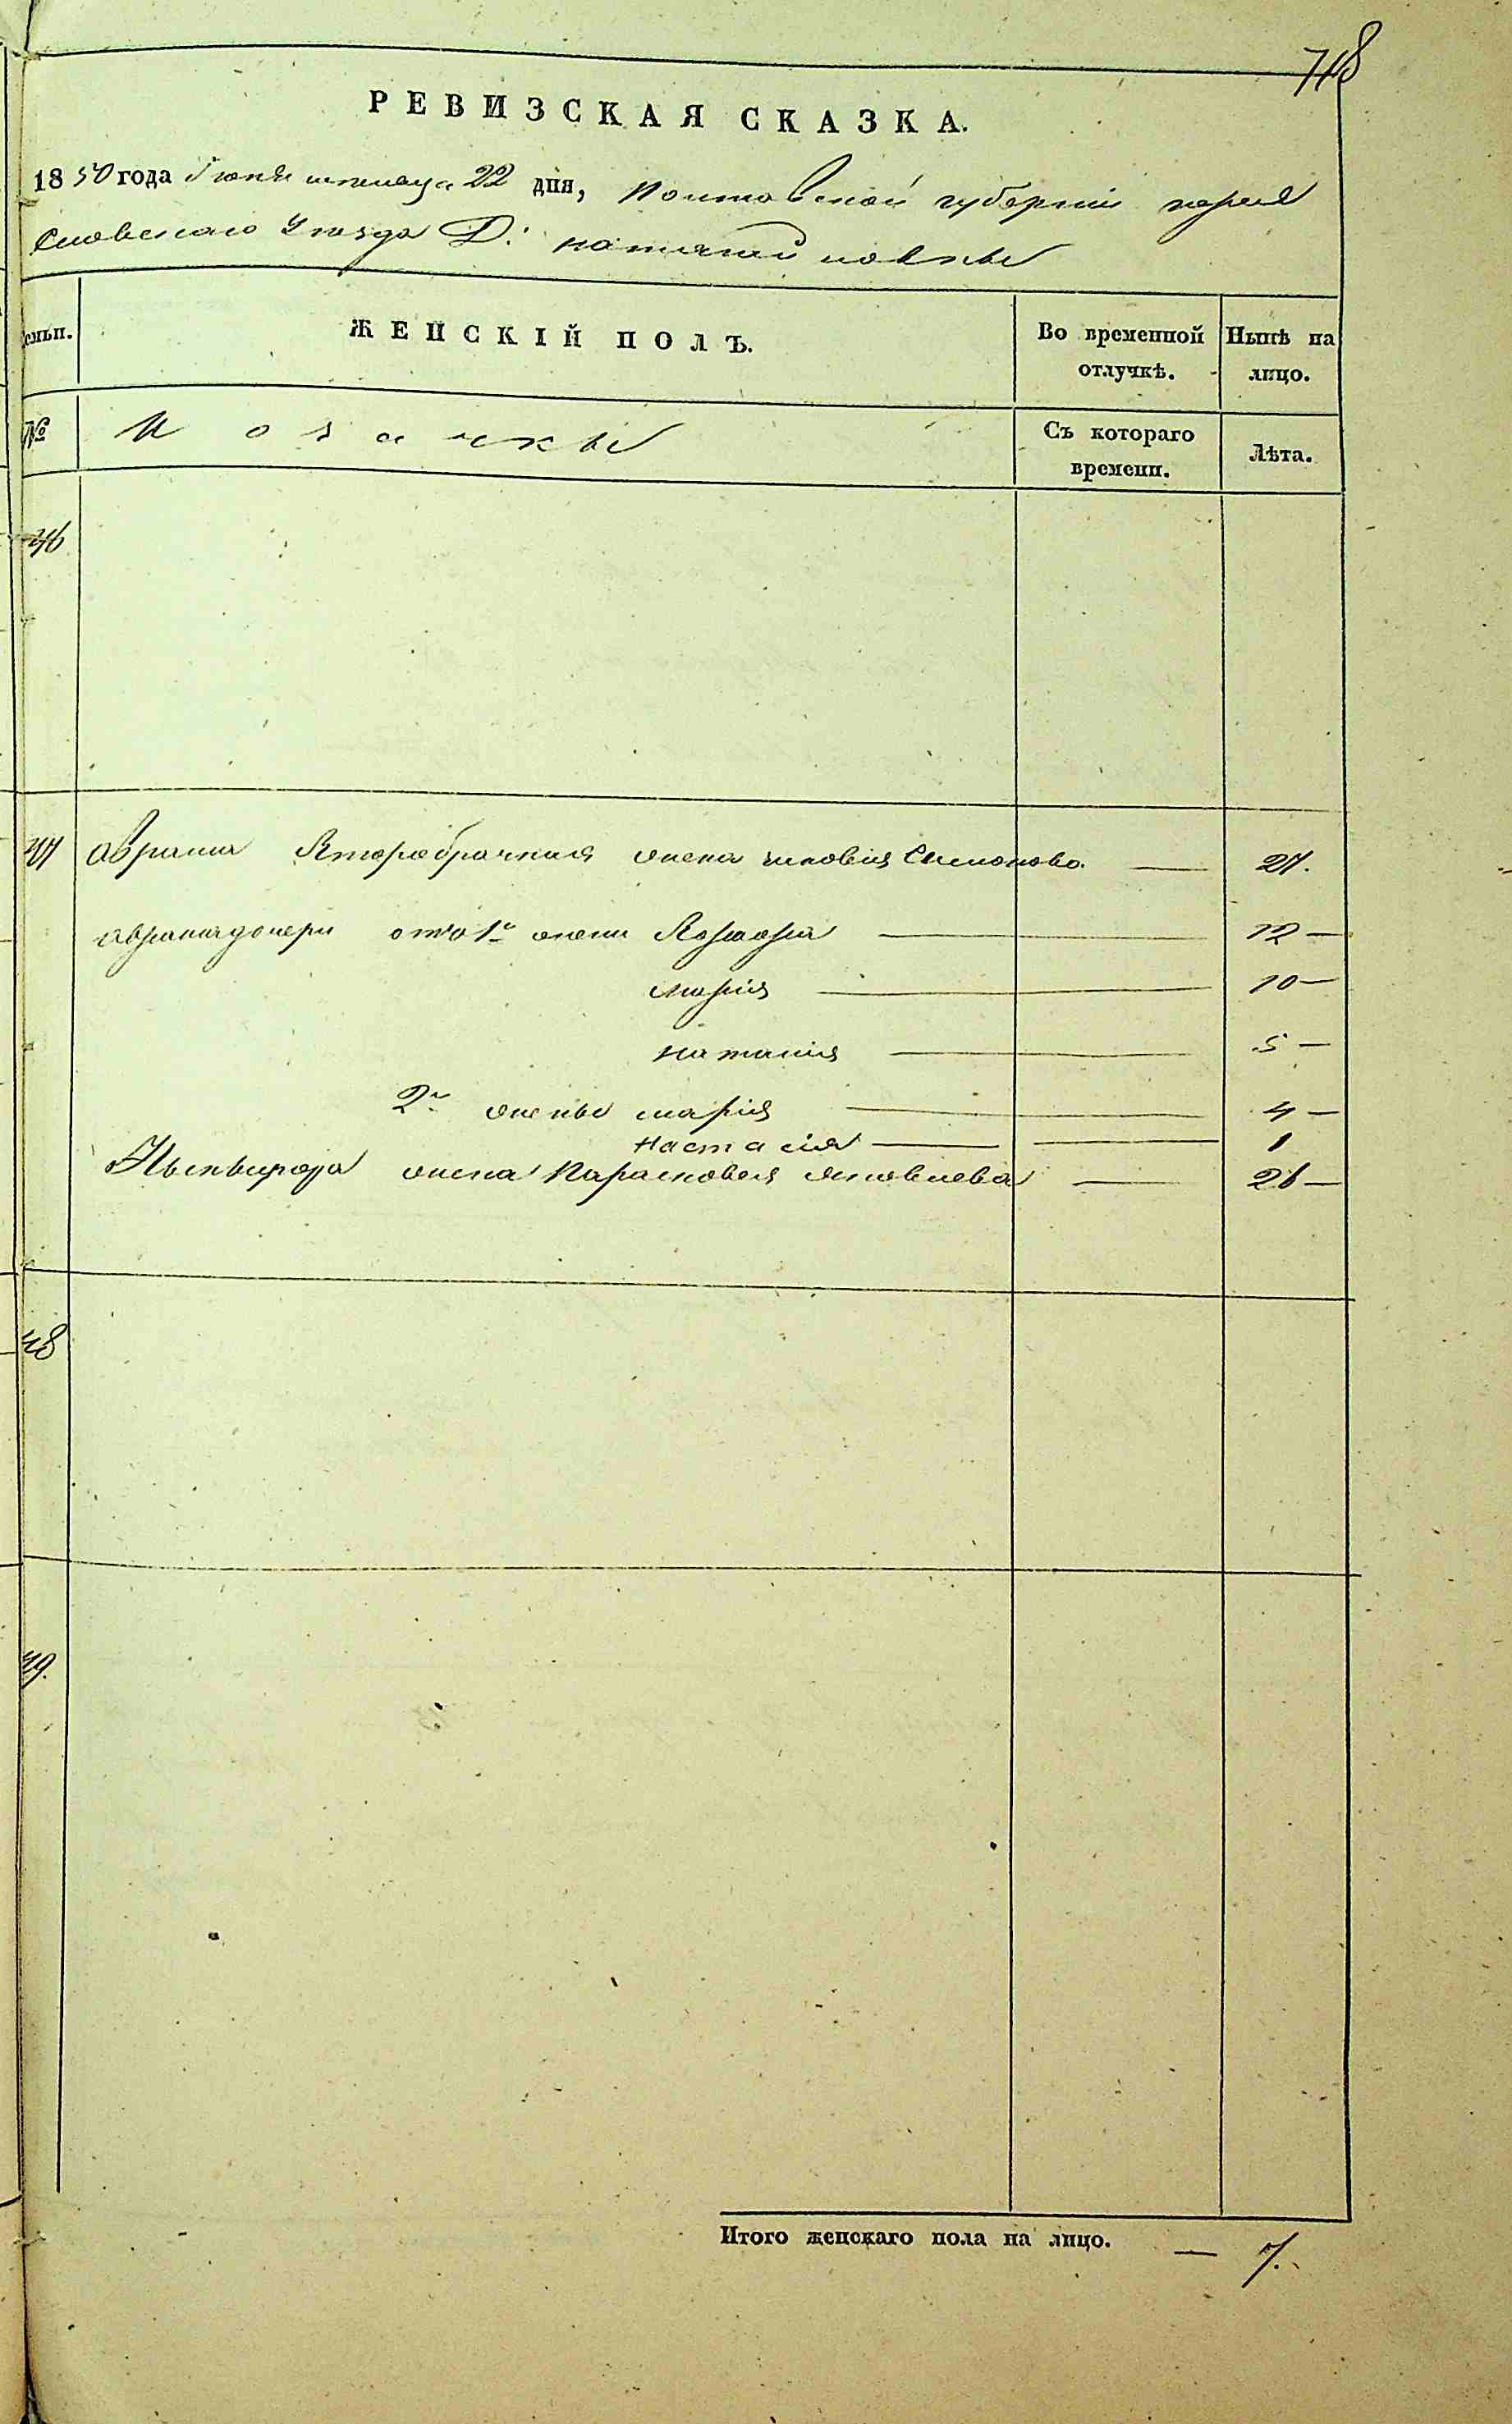 718
РЕВИЗСКАЯ СКАЗКА.
1850 года Июня месяца 22 дня, Полтавской губернии
Уезда Д:
ЖЕНСКІЙ ПОЛЪ.
Во временной отлучкѣ.
Нынѣ на лицо.
№
Козачкы
Съ котораго времени.
Лѣта.
46
47 Аврама Второбрачная жена Симонова. — 27.
Аврама дочери отъ 1й жени Варвара — 12 —
Марія — 10 —
Наталія — 5 —
2й жены Марія — 4 —
Настасія — 1
жена Парасковея Яковлева — 26 —
48
49.
Итого женскаго пола на лицо. — 7.